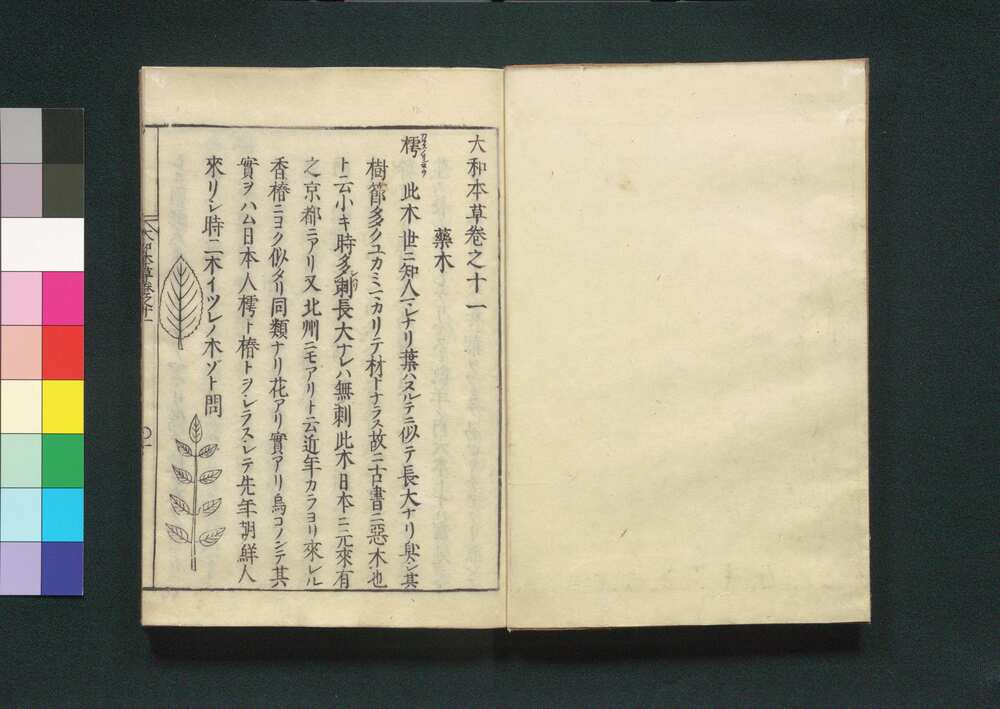 大和本草卷之十一
藥木
樗 此木世ニ知人マレナリ葉ハヌルテニ似テ長大ナリ臭シ其
樹節多クユカミマカリテ材トナラス故ニ古書ニ惡木也
ト云小キ時多刺長大ナレハ無刺此木日本ニ元來有
之京都ニアリ又北州ニモアリト云近年カラヨリ來レル
香椿ニヨク似タリ同類ナリ花アリ實アリ烏コノンテ其
實ヲハム日本人樗ト椿トヲシラスシテ先年朝鮮人
來リシ時二木イツレノ木ゾト問
大和本草卷之十一